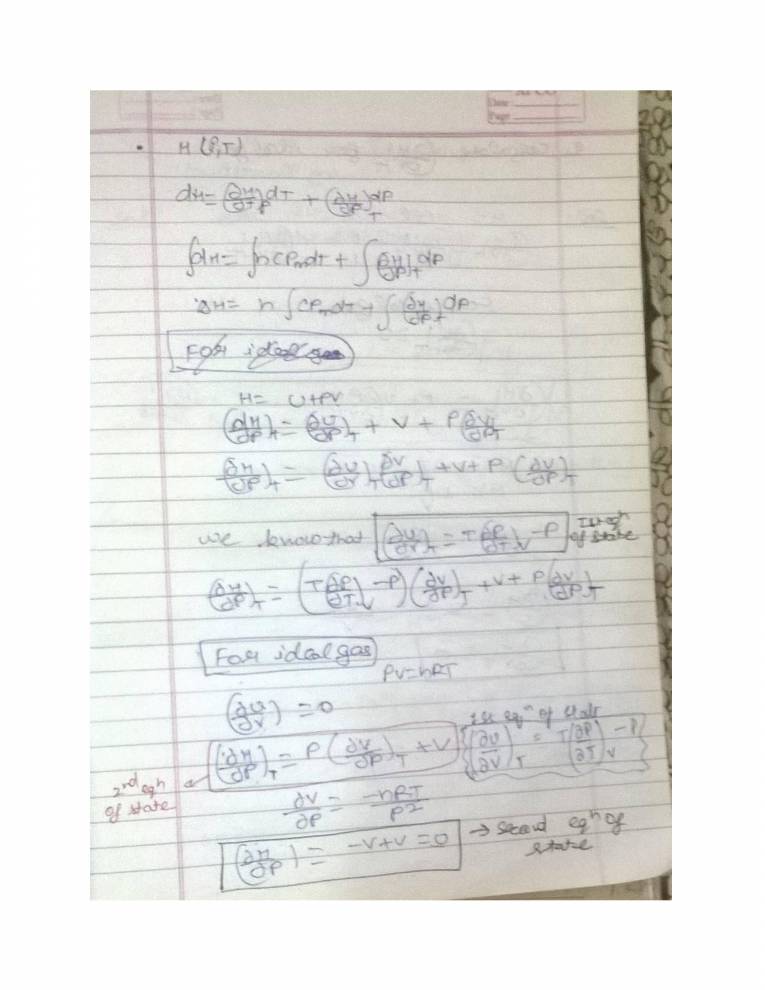 Date
Page
• H (P,T)
dH = (∂H/∂T)_P dT + (∂H/∂P)_T dP
∫dH = ∫nCPm dT + ∫(∂H/∂P)_T dP
ΔH = n∫CPm dT + ∫(∂H/∂P)_T dP
For ideal gas
H = U+PV
(dH/∂P)_T = (∂U/∂P)_T + V + P(∂V/∂P)_T
(∂H/∂P)_T = (∂U/∂V)_T (∂V/∂P)_T + V + P (∂V/∂P)_T
we know that (∂U/∂V)_T = T(∂P/∂T)_V - P Ist eqn of state
(∂H/∂P)_T = (T(∂P/∂T)_V - P) (∂V/∂P)_T + V + P(∂V/∂P)_T
For ideal gas
PV=nRT
(∂U/∂V) = 0
1st eqn of state
(∂H/∂P)_T = P (∂V/∂P)_T + V {(∂U/∂V)_T = T(∂P/∂T)_V - P}
2nd eqn of state
∂V/∂P = -nRT/P2
(∂H/∂P) = -V+V = 0 → second eqn of state